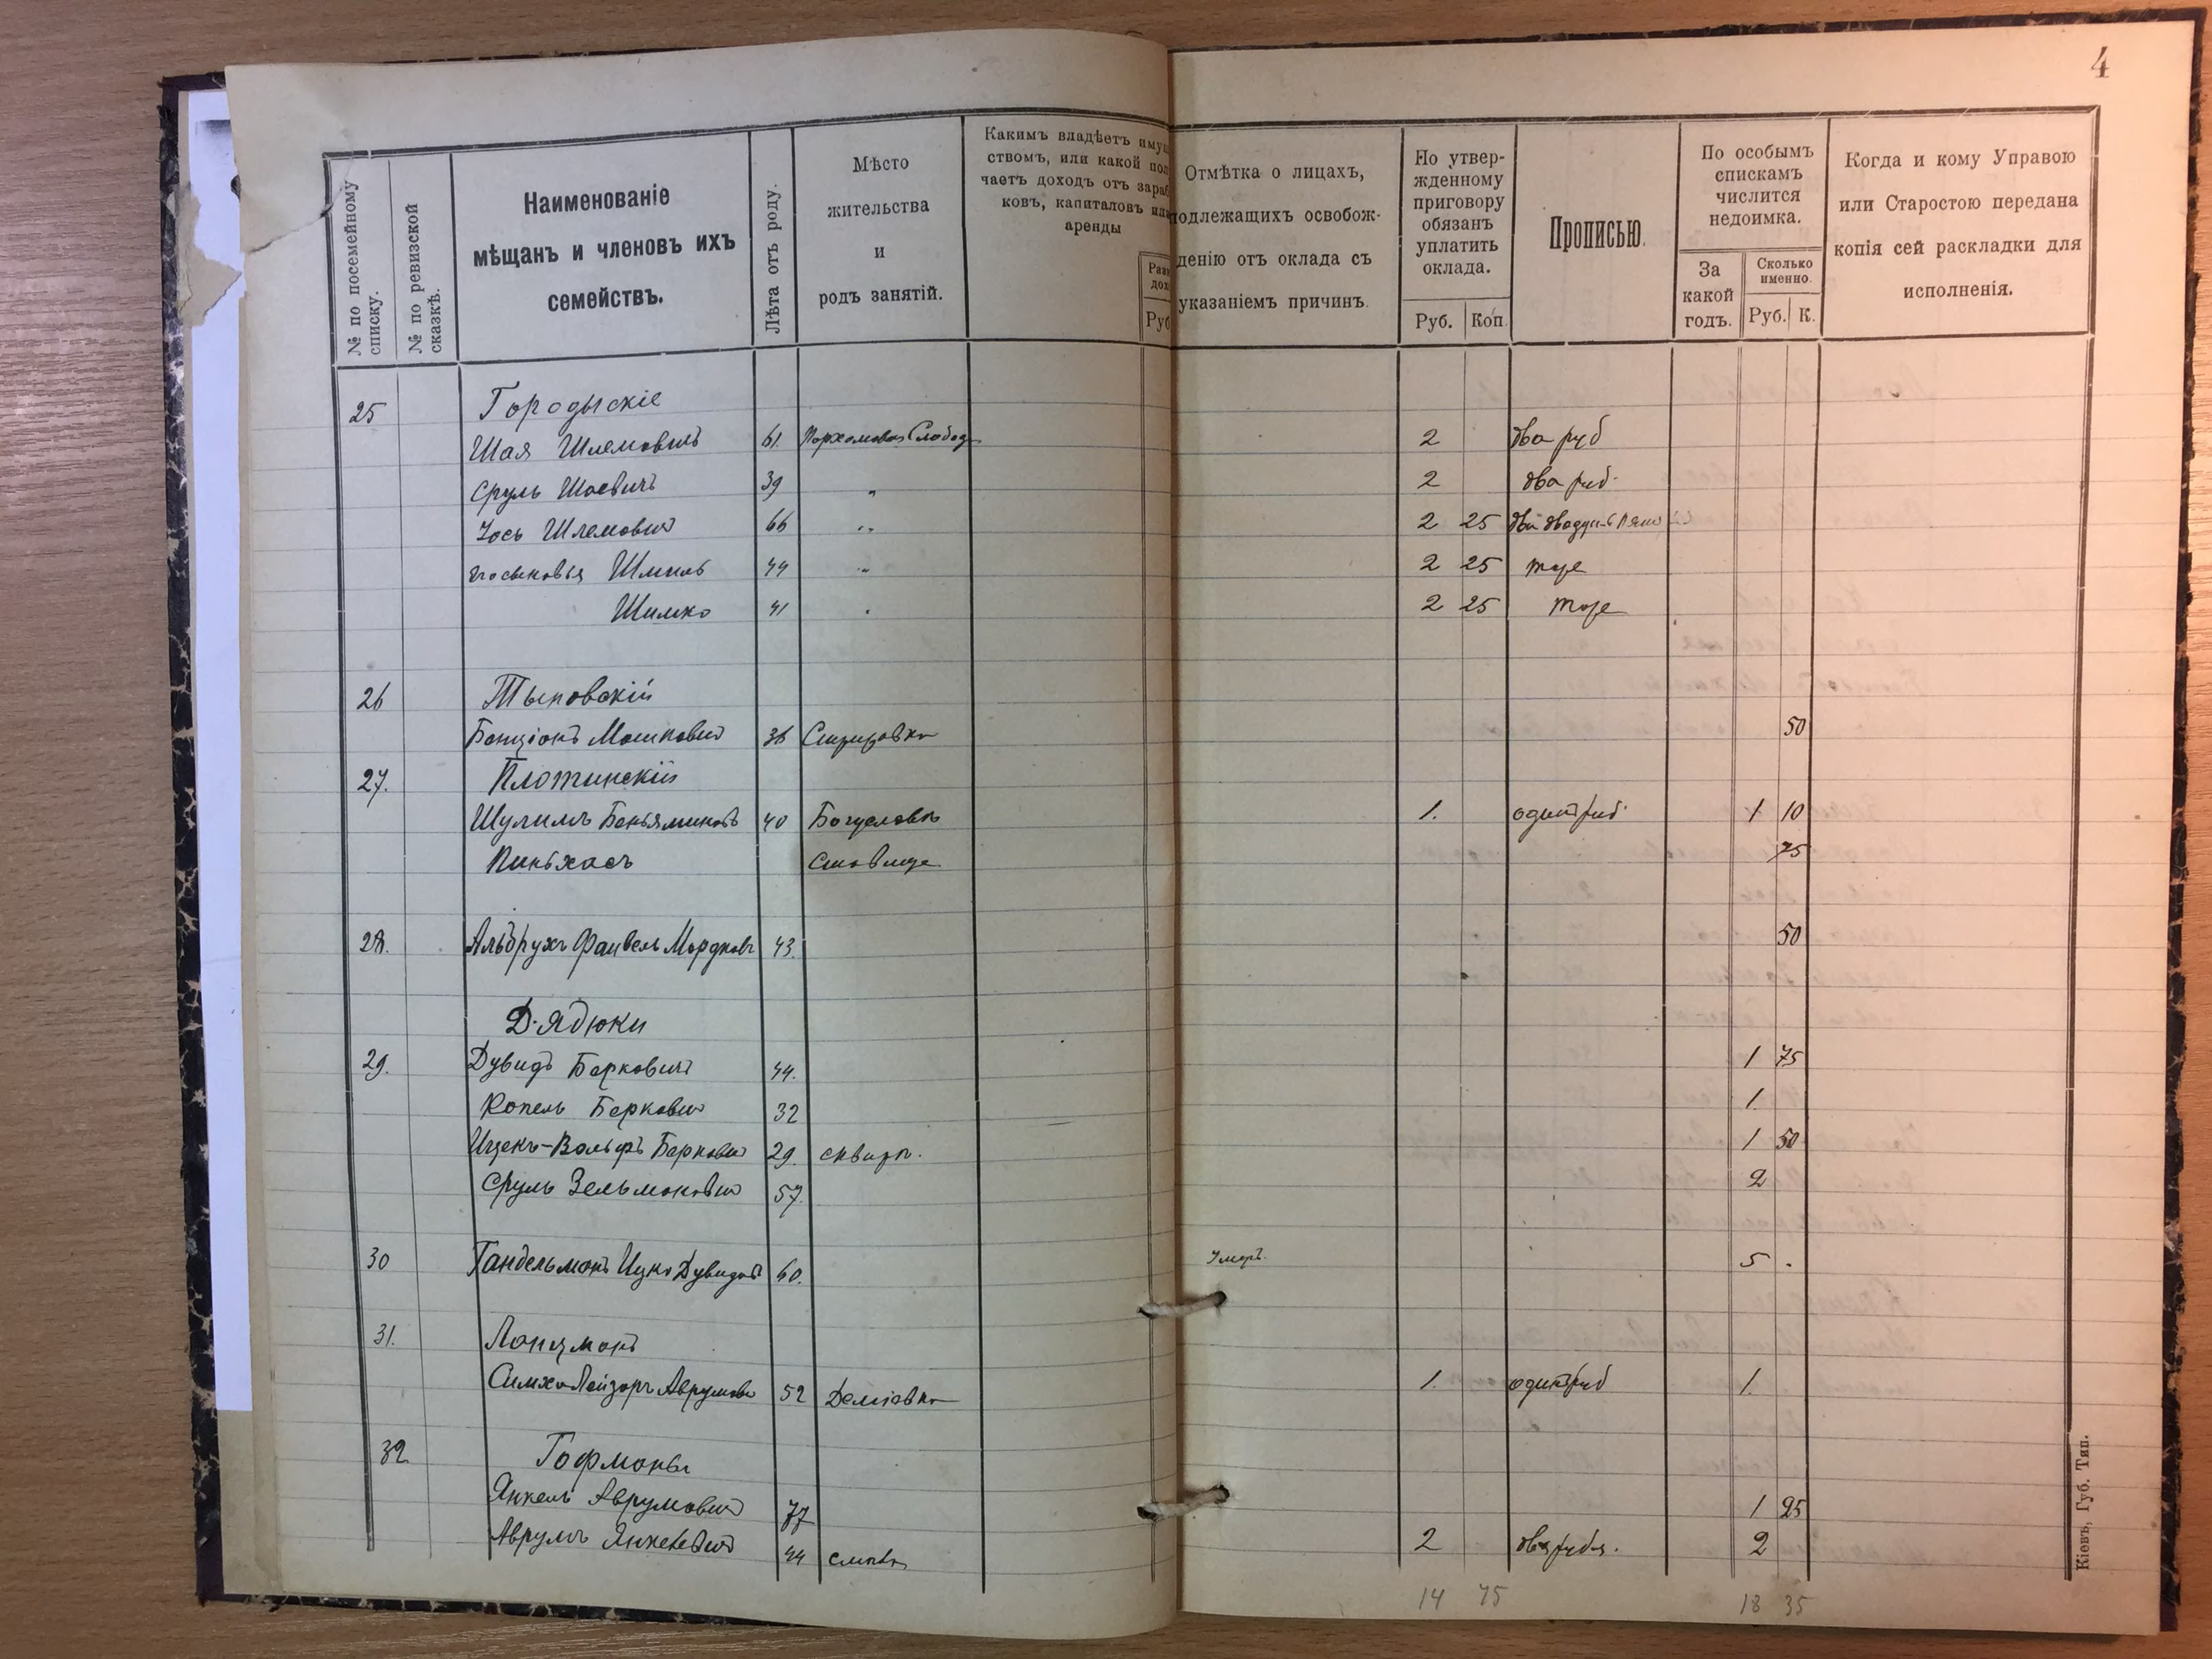 4
№ по посемейному списку.
№ по ревизской сказкѣ.
Наименованіе
мѣщанъ и членовъ ихъ
семействъ.
Лѣта отъ роду.
Мѣсто
жительства
и
родъ занятій.
Какимъ владѣетъ иму
ствомъ, или какой пол
чаетъ доходъ отъ зараб
ковъ, капиталовъ или
аренды
Руб
Отмѣтка о лицахъ,
подлежащихъ освобож-
денію отъ оклада съ
указаніемъ причинъ.
По утвер-
жденному
приговору
обязанъ
уплатить
оклада.
Руб. Коп.
Прописью.
По особымъ
спискамъ
числится
недоимка.
За
какой
годъ.
Сколько
именно.
Руб. К.
Когда и кому Управою
или Старостою передана
копія сей раскладки для
исполненія.
25 Городыскіе
Шая Шлемовичъ 61 Слобод 2 два руб
Сруль Шаевичъ 39 " 2 два руб.
Іось Шлемович 66 " 2 25 два двадцать пять
Шмиль 44 " 2 25 тоже
Шимко 41 " 2 25 тоже
26 Тыновскій
Бенціонъ Мошкович 36 50
27. Плотинскій
Шулимъ Беньяминовъ 40 Богуславъ 1. один руб. 1 10
Пиньхасъ Ставище 75
28. Альбрухъ Файвель Мордков 43. 50
Дядюки
29. Дувидъ Берковичъ 44. 1 75
Копель Беркович 32 1.
Ицекъ-Вольфъ Беркович 29. сквира. 1 50
Сруль Зельманович 57. 2
30 Гандельманъ Ицко Дувидов 60. Умеръ. 5 .
31. Лопцманъ
Симха Лейзоръ Аврумов 52 Деміевка 1. один руб 1.
32 Гофманы
Янкель Аврумович 77 1 25
Аврумъ Янкелевич 44 2 два рубл. 2
14 75 18 35
Кіевъ, Губ. Тип.